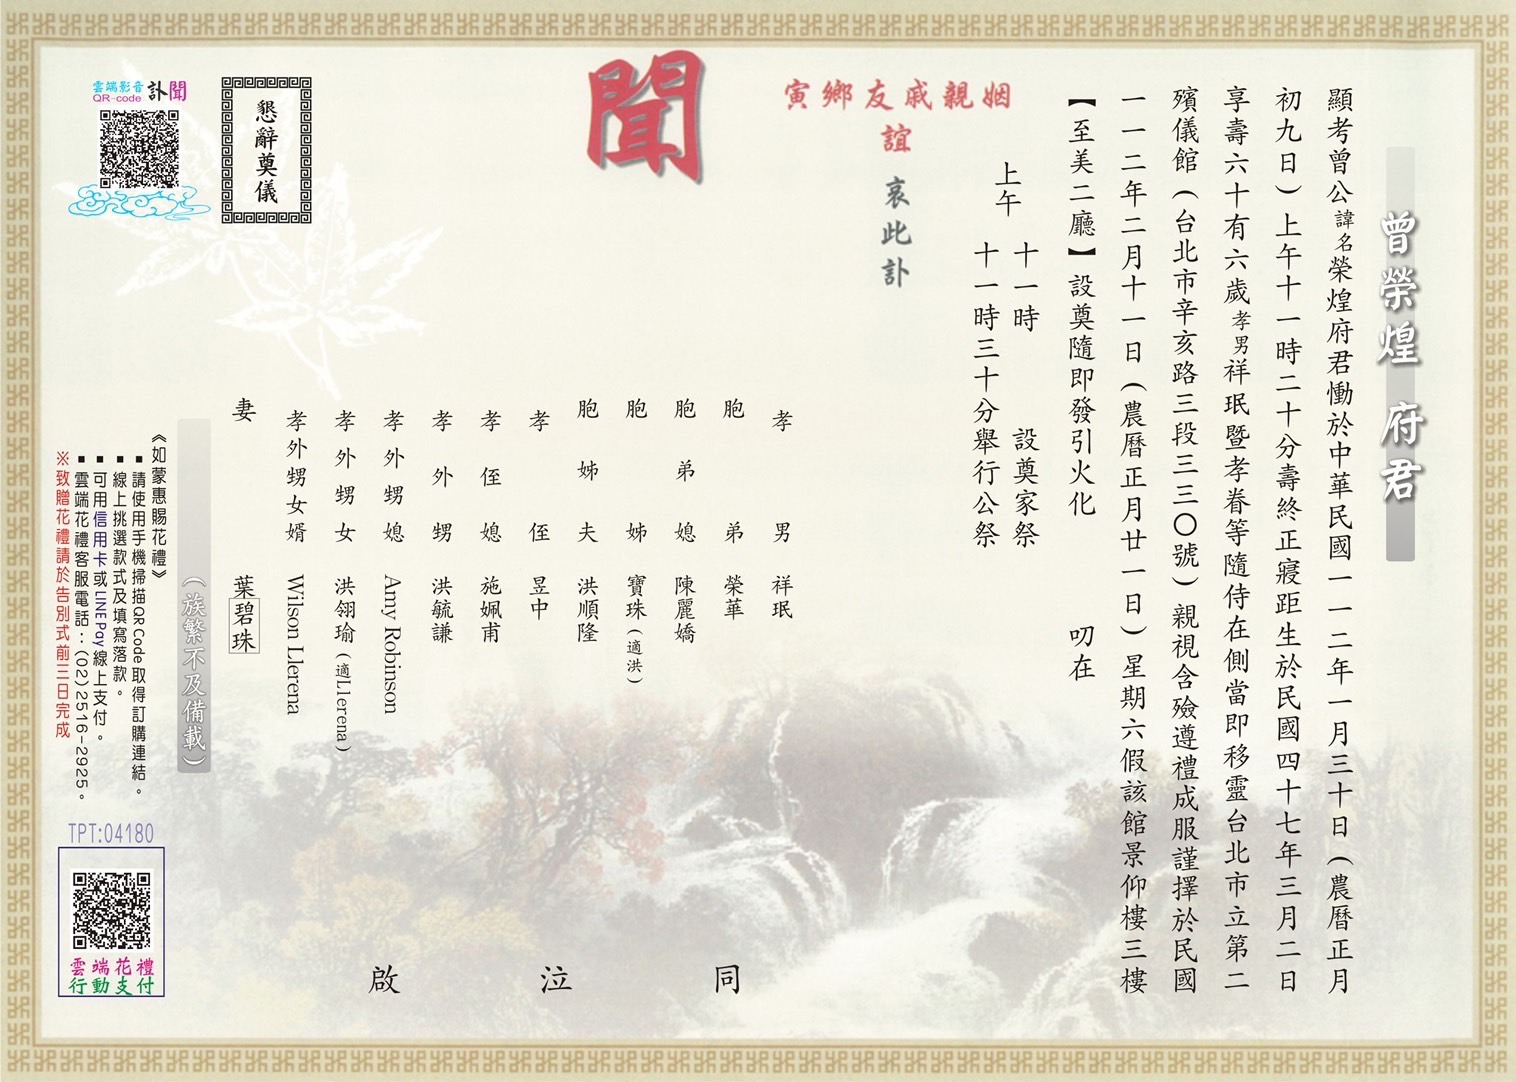 曾榮煌 府君
顯考曾公諱名榮煌府君慟於中華民國一一二年一月三十日(農曆正月
初九日)上午十一時二十分壽終正寢距生於民國四十七年三月二日
享壽六十有六歲孝男祥珉暨孝眷等隨侍在側當即移靈台北市立第二
殯儀館(台北市辛亥路三段三三〇號)親視含殮遵禮成服謹擇於民國
一一二年二月十一日(農曆正月廿一日)星期六假該館景仰樓三樓
【至美二廳】設奠隨即發引火化
上午
十一時 設奠家祭
十一時三十分舉行公祭
叨在
姻親戚友鄉寅
誼
哀此訃
聞
孝男 祥珉
胞弟 榮華
胞弟媳 陳麗嬌
胞姊 寶珠(適洪)
胞姊夫 洪順隆
孝侄 昱中
孝侄媳 施姵甫
孝外甥 洪毓謙
孝外甥媳 Amy Robinson
孝外甥女 洪翎瑜(適Llerena)
孝外甥女婿 Wilson Llerena
妻 葉碧珠
同泣啟
(族繁不及備載)
懇辭奠儀
雲端影音
QR-code
訃聞
《如蒙惠賜花禮》
■請使用手機掃描QR Code取得訂購連結。
■線上挑選款式及填寫落款。
■可用信用卡或LINE Pay線上支付。
■雲端花禮客服電話:(02)2516-2925。
※致贈花禮請於告別式前三日完成
TPT:04180
雲端花禮
行動支付